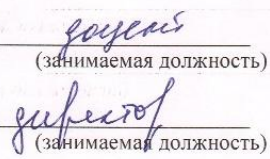 доцент
(занимаемая должность)
директор
(занимаемая должность)